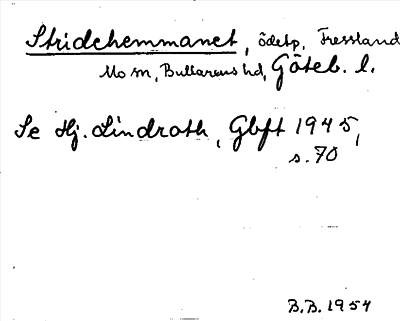 Stridehemmanet, ödetp, Fressland
Mo sn, Bullarens hd, Göteb. l.
Se Hj. Lindroth, Gbft 1945,
s. 70
B.B. 1954